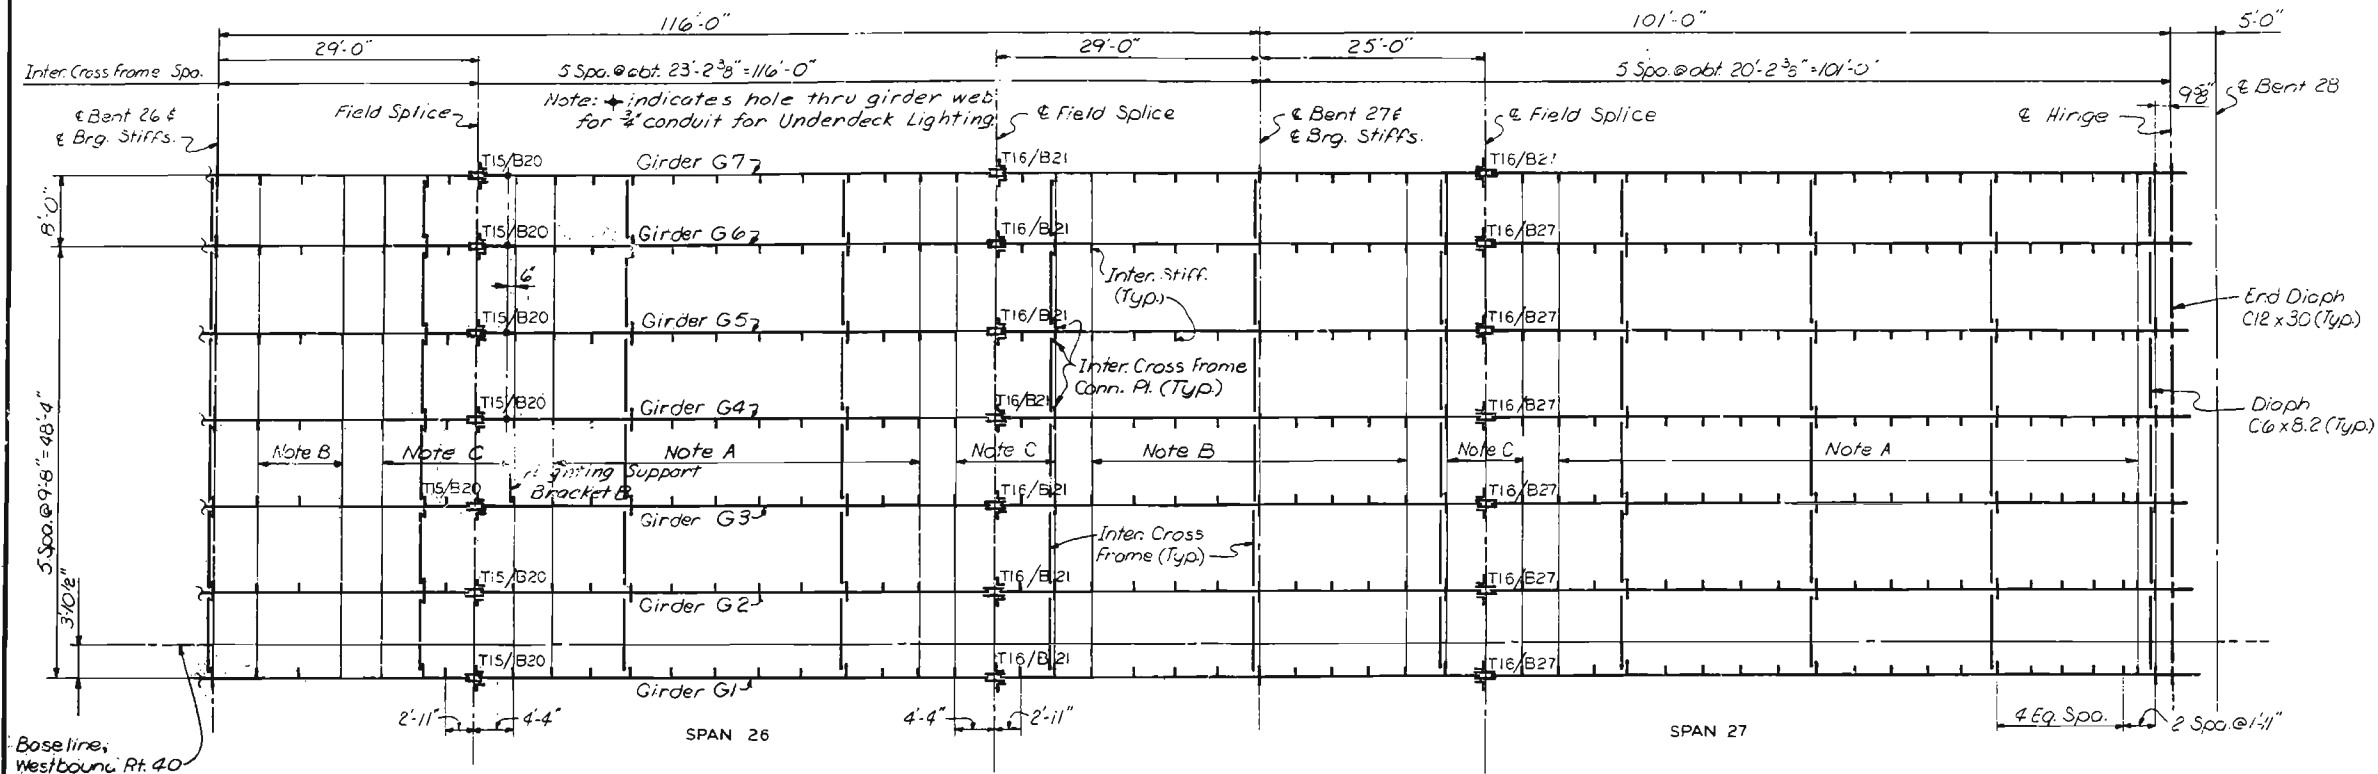 116'-0"
101'-0"
5'-0"
29'-0"
29'-0"
25'-0"
Inter. Cross Frame Spa.
5 Spa. @ abt. 23'-2 3/8" = 116'-0"
5 Spa. @ abt. 20'-2 3/8" = 101'-0"
9 3/8"
℄ Bent 26 &
℄ Brg. Stiffs.
Field Splice
Note: indicates hole thru girder web
for 3/4" conduit for Underdeck Lighting.
℄ Field Splice
℄ Bent 27 &
℄ Brg. Stiffs.
℄ Field Splice
℄ Hinge
℄ Bent 28
T15/B20
Girder G7
T16/B21
T16/B27
8'-0"
T15/B20
Girder G6
T16/B21
T16/B27
6"
Inter. Stiff.
(Typ.)
End Diaph
C12 x 30 (Typ.)
T15/B20
Girder G5
T16/B21
T16/B27
Inter. Cross Frame
Conn. Pl. (Typ.)
T15/B20
Girder G4
T16/B21
T16/B27
Diaph
C6 x 8.2 (Typ.)
5 Spa. @ 9'-8" = 48'-4"
Note B
Note C
Note A
Note C
Note B
Note C
Note A
Lighting Support
Bracket B
T15/B20
Girder G3
T16/B21
T16/B27
Inter. Cross
Frame (Typ.)
3'-10 1/2"
T15/B20
Girder G2
T16/B21
T16/B27
T15/B20
Girder G1
T16/B21
T16/B27
2'-11"
4'-4"
4'-4"
2'-11"
4 Eq. Spa.
2 Spa. @ 1'-11"
SPAN 26
SPAN 27
Baseline,
Westbound Rt. 40